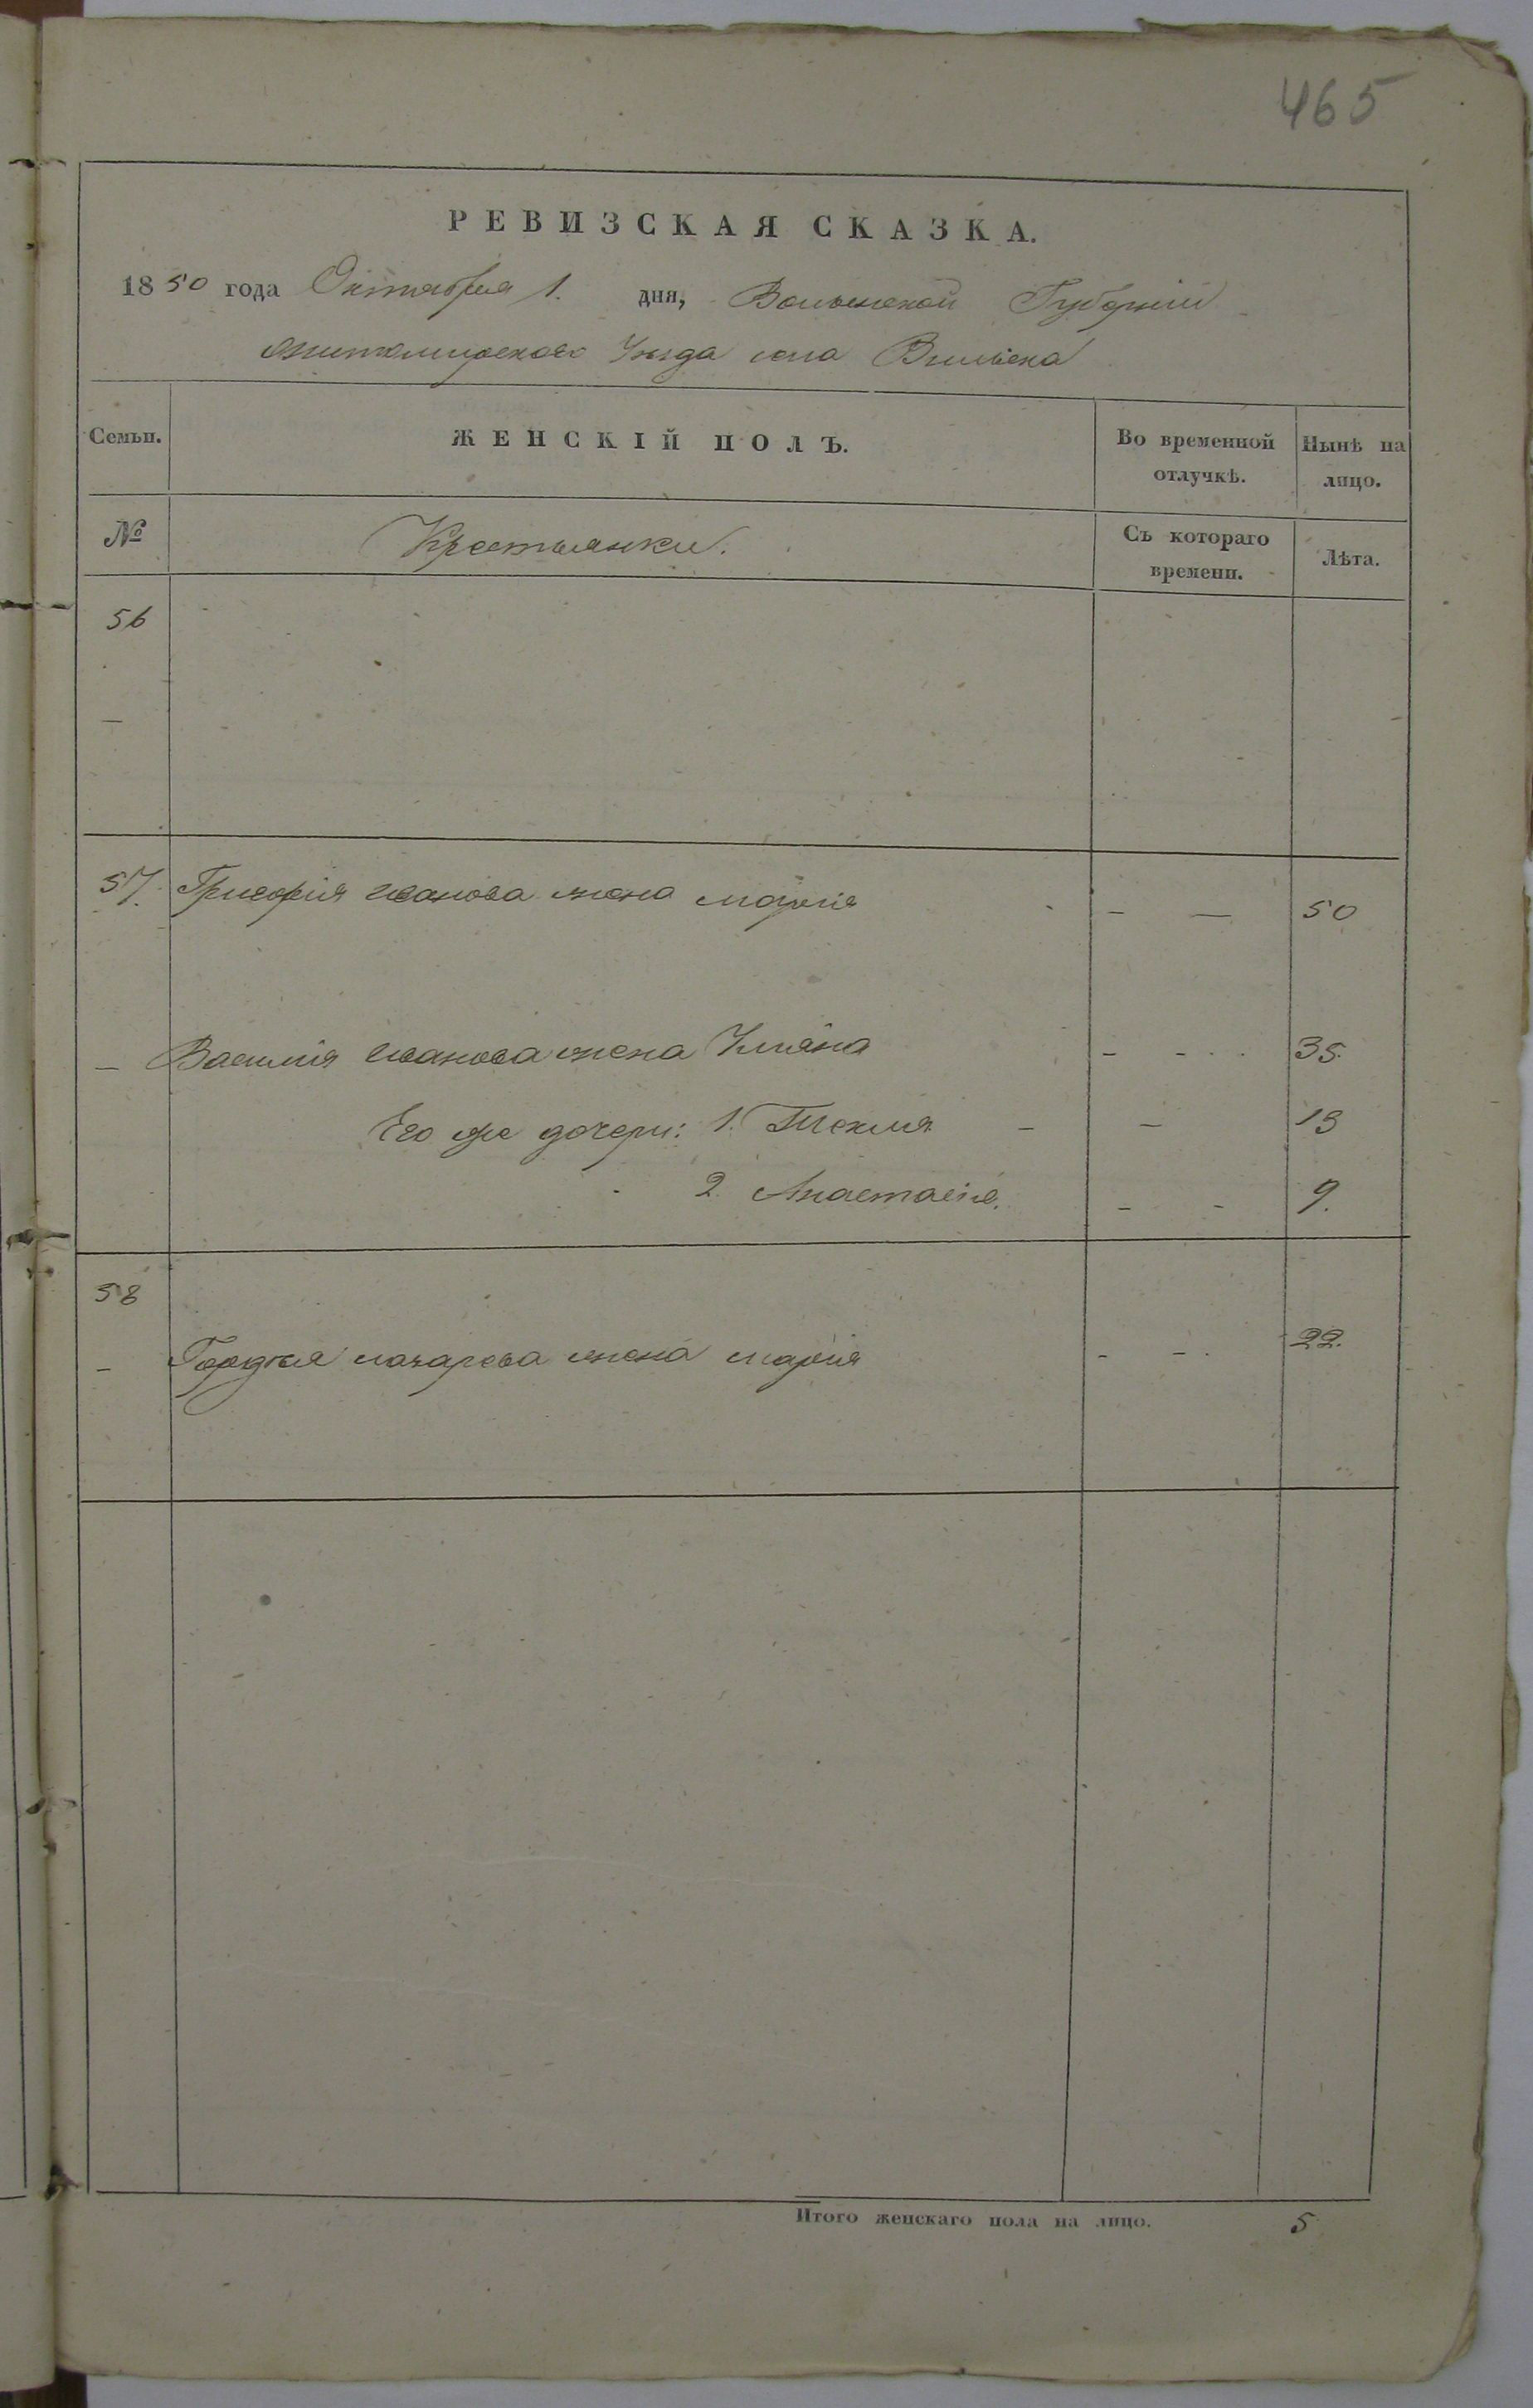 465
РЕВИЗСКАЯ СКАЗКА.
1850 года Октября 1. дня, Волынской Губерніи
Житомирского Уезда села Вильска
Семьи. ЖЕНСКІЙ ПОЛЪ. Во временной отлучкѣ. Нынѣ на лицо.
№ Крестьянки. Съ котораго времени. Лѣта.
56
—
57. Григорія Иванова жена Марія - — 50
— Василія Иванова жена Ульяна - - . . 35.
Его же дочери: 1. Текля — — 13
2. Анастасія. - - 9.
58
- Гордѣя Макарова жена Марія - - . 22.
Итого женскаго пола на лицо. 5